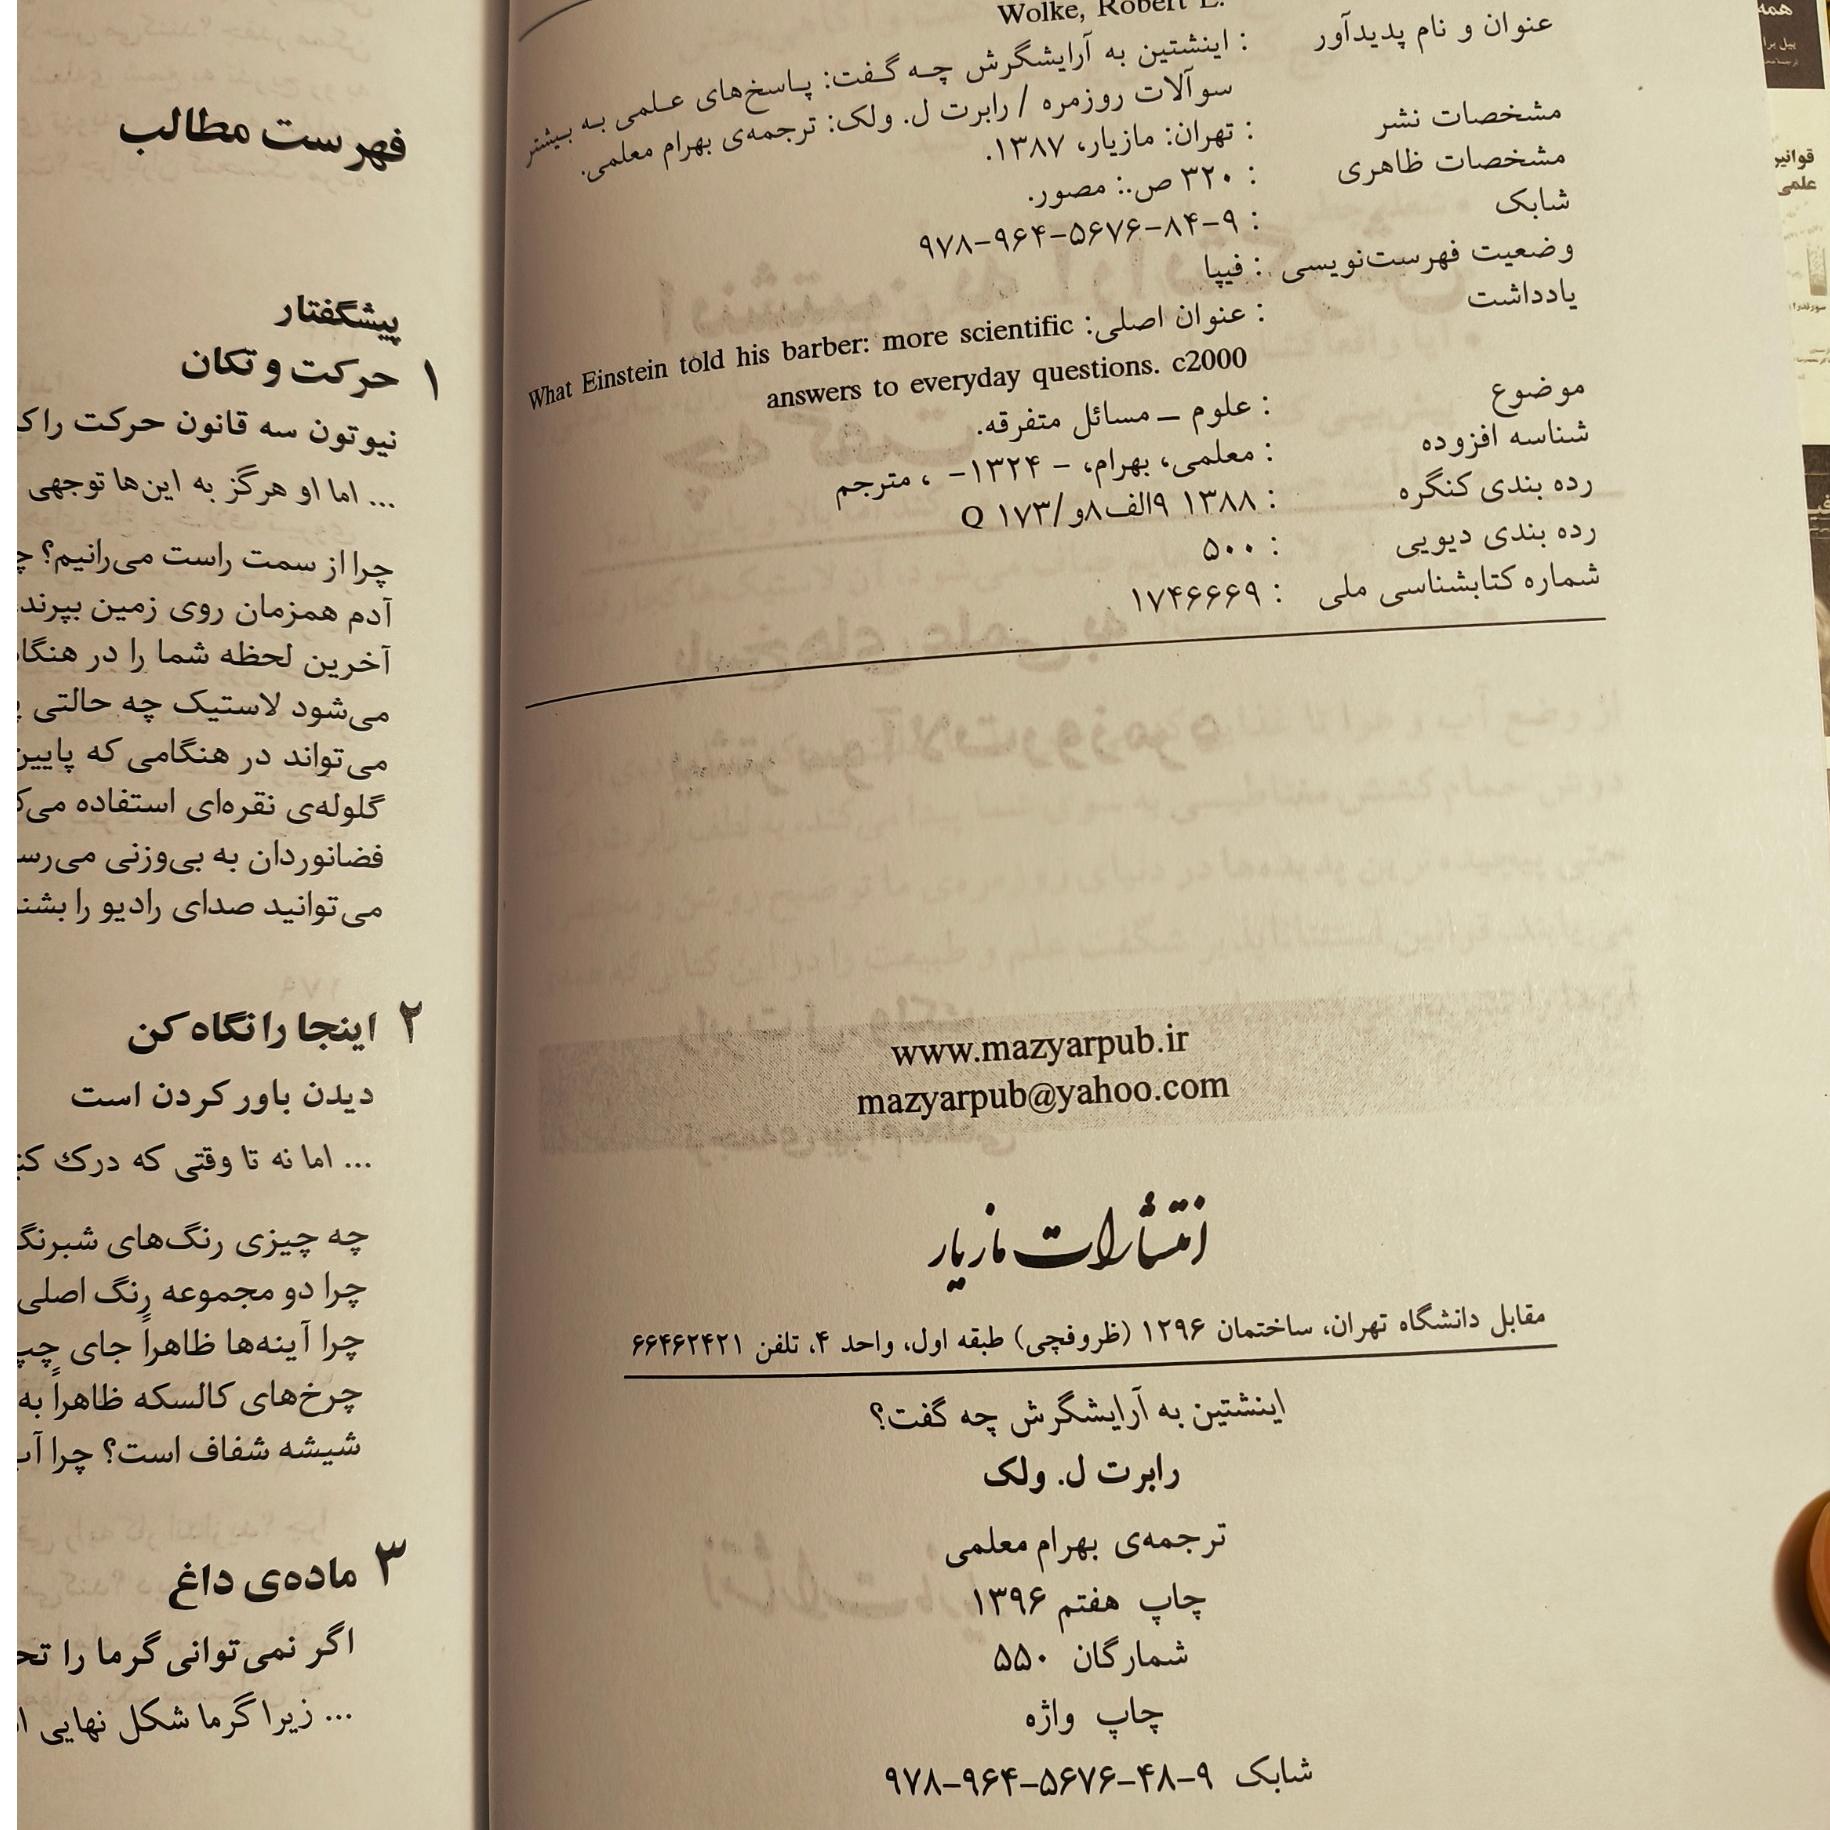 Wolke, Robert L.
عنوان و نام پدیدآور : اینشتین به آرایشگرش چه گفت: پاسخ‌های علمی به بیشتر
سوآلات روزمره / رابرت ل. ولک: ترجمه‌ی بهرام معلمی.
مشخصات نشر : تهران: مازیار، ۱۳۸۷.
مشخصات ظاهری : ۳۲۰ ص.: مصور.
شابک : ۹۷۸-۹۶۴-۵۶۷۶-۸۴-۹
وضعیت فهرست‌نویسی : فیپا
یادداشت : عنوان اصلی: What Einstein told his barber: more scientific
answers to everyday questions. c2000
موضوع : علوم ــ مسائل متفرقه.
شناسه افزوده : معلمی، بهرام، - ۱۳۲۴- ، مترجم
رده بندی کنگره : ۱۳۸۸ ۹الف۸و/۱۷۳ Q
رده بندی دیویی : ۵۰۰
شماره کتابشناسی ملی : ۱۷۴۶۶۶۹
www.mazyarpub.ir
mazyarpub@yahoo.com
انتشارات مازیار
مقابل دانشگاه تهران، ساختمان ۱۲۹۶ (ظروفچی) طبقه اول، واحد ۴، تلفن ۶۶۴۶۲۴۲۱
اینشتین به آرایشگرش چه گفت؟
رابرت ل. ولک
ترجمه‌ی بهرام معلمی
چاپ هفتم ۱۳۹۶
شمارگان ۵۵۰
چاپ واژه
شابک ۹۷۸-۹۶۴-۵۶۷۶-۴۸-۹
فهرست مطالب
پیشگفتار
۱ حرکت و تکان
نیوتون سه قانون حرکت را
... اما او هرگز به این‌ها توجهی
چرا از سمت راست می‌رانیم؟
آدم همزمان روی زمین بپرند
آخرین لحظه شما را در
می‌شود لاستیک چه حالتی
می‌تواند در هنگامی که پایین
گلوله‌ی نقره‌ای استفاده
فضانوردان به بی‌وزنی
می‌توانید صدای رادیو را
۲ اینجا را نگاه کن
دیدن باور کردن است
... اما نه تا وقتی که درک
چه چیزی رنگ‌های
چرا دو مجموعه رنگ اصلی
چرا آینه‌ها ظاهراً جای
چرخ‌های کالسکه ظاهراً به
شیشه شفاف است؟ چرا
۳ ماده‌ی داغ
اگر نمی‌توانی گرما را
... زیرا گرما شکل نهایی
همه
قوانین
علمی